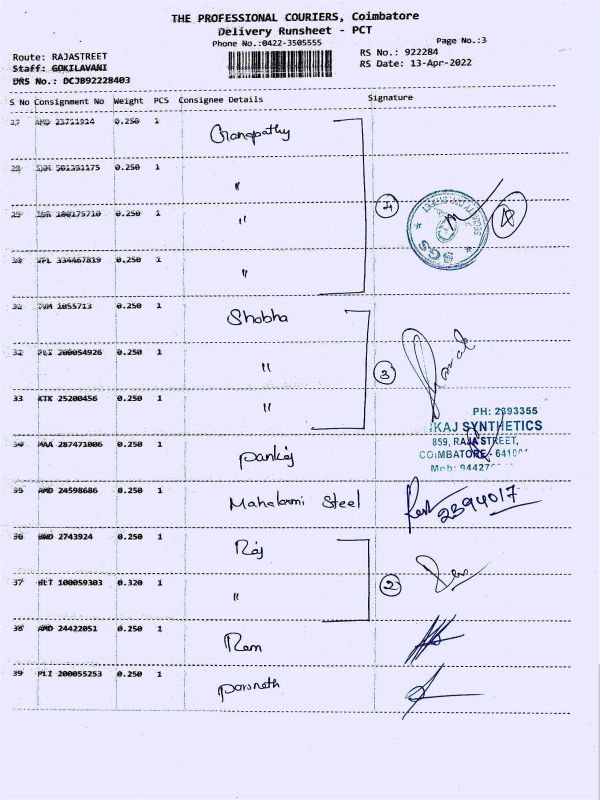 THE PROFESSIONAL COURIERS, Coimbatore
Delivery Runsheet - PCT
Phone No.:0422-3505555
Page No.:3
Route: RAJASTREET
RS No.: 922284
Staff: GOKILAVANI
RS Date: 13-Apr-2022
DRS No.: DCJB92228403
S No Consignment No Weight PCS Consignee Details Signature
27 AMD 23711914 0.250 1 Ganapathy
501351175 0.250 1 "
29 100175710 0.250 1 "
334467819 0.250 1 "
4
SGS
1055713 0.250 1 Shobha
32 PLI 200054926 0.250 1 "
3
33 KTK 25200456 0.250 1 "
PH: 2393355
KAJ SYNTHETICS
859, RAJA STREET,
COIMBATORE - 641001
Mob: 94427
34 MAA 287471006 0.250 1 pankaj
35 AMD 24598686 0.250 1 Mahalaxmi Steel
2394017
36 BWD 2743924 0.250 1 Raj
2
37 BLT 100059303 0.320 1 "
38 AMD 24422051 0.250 1 Ram
39 PLI 200055253 0.250 1 parsnath